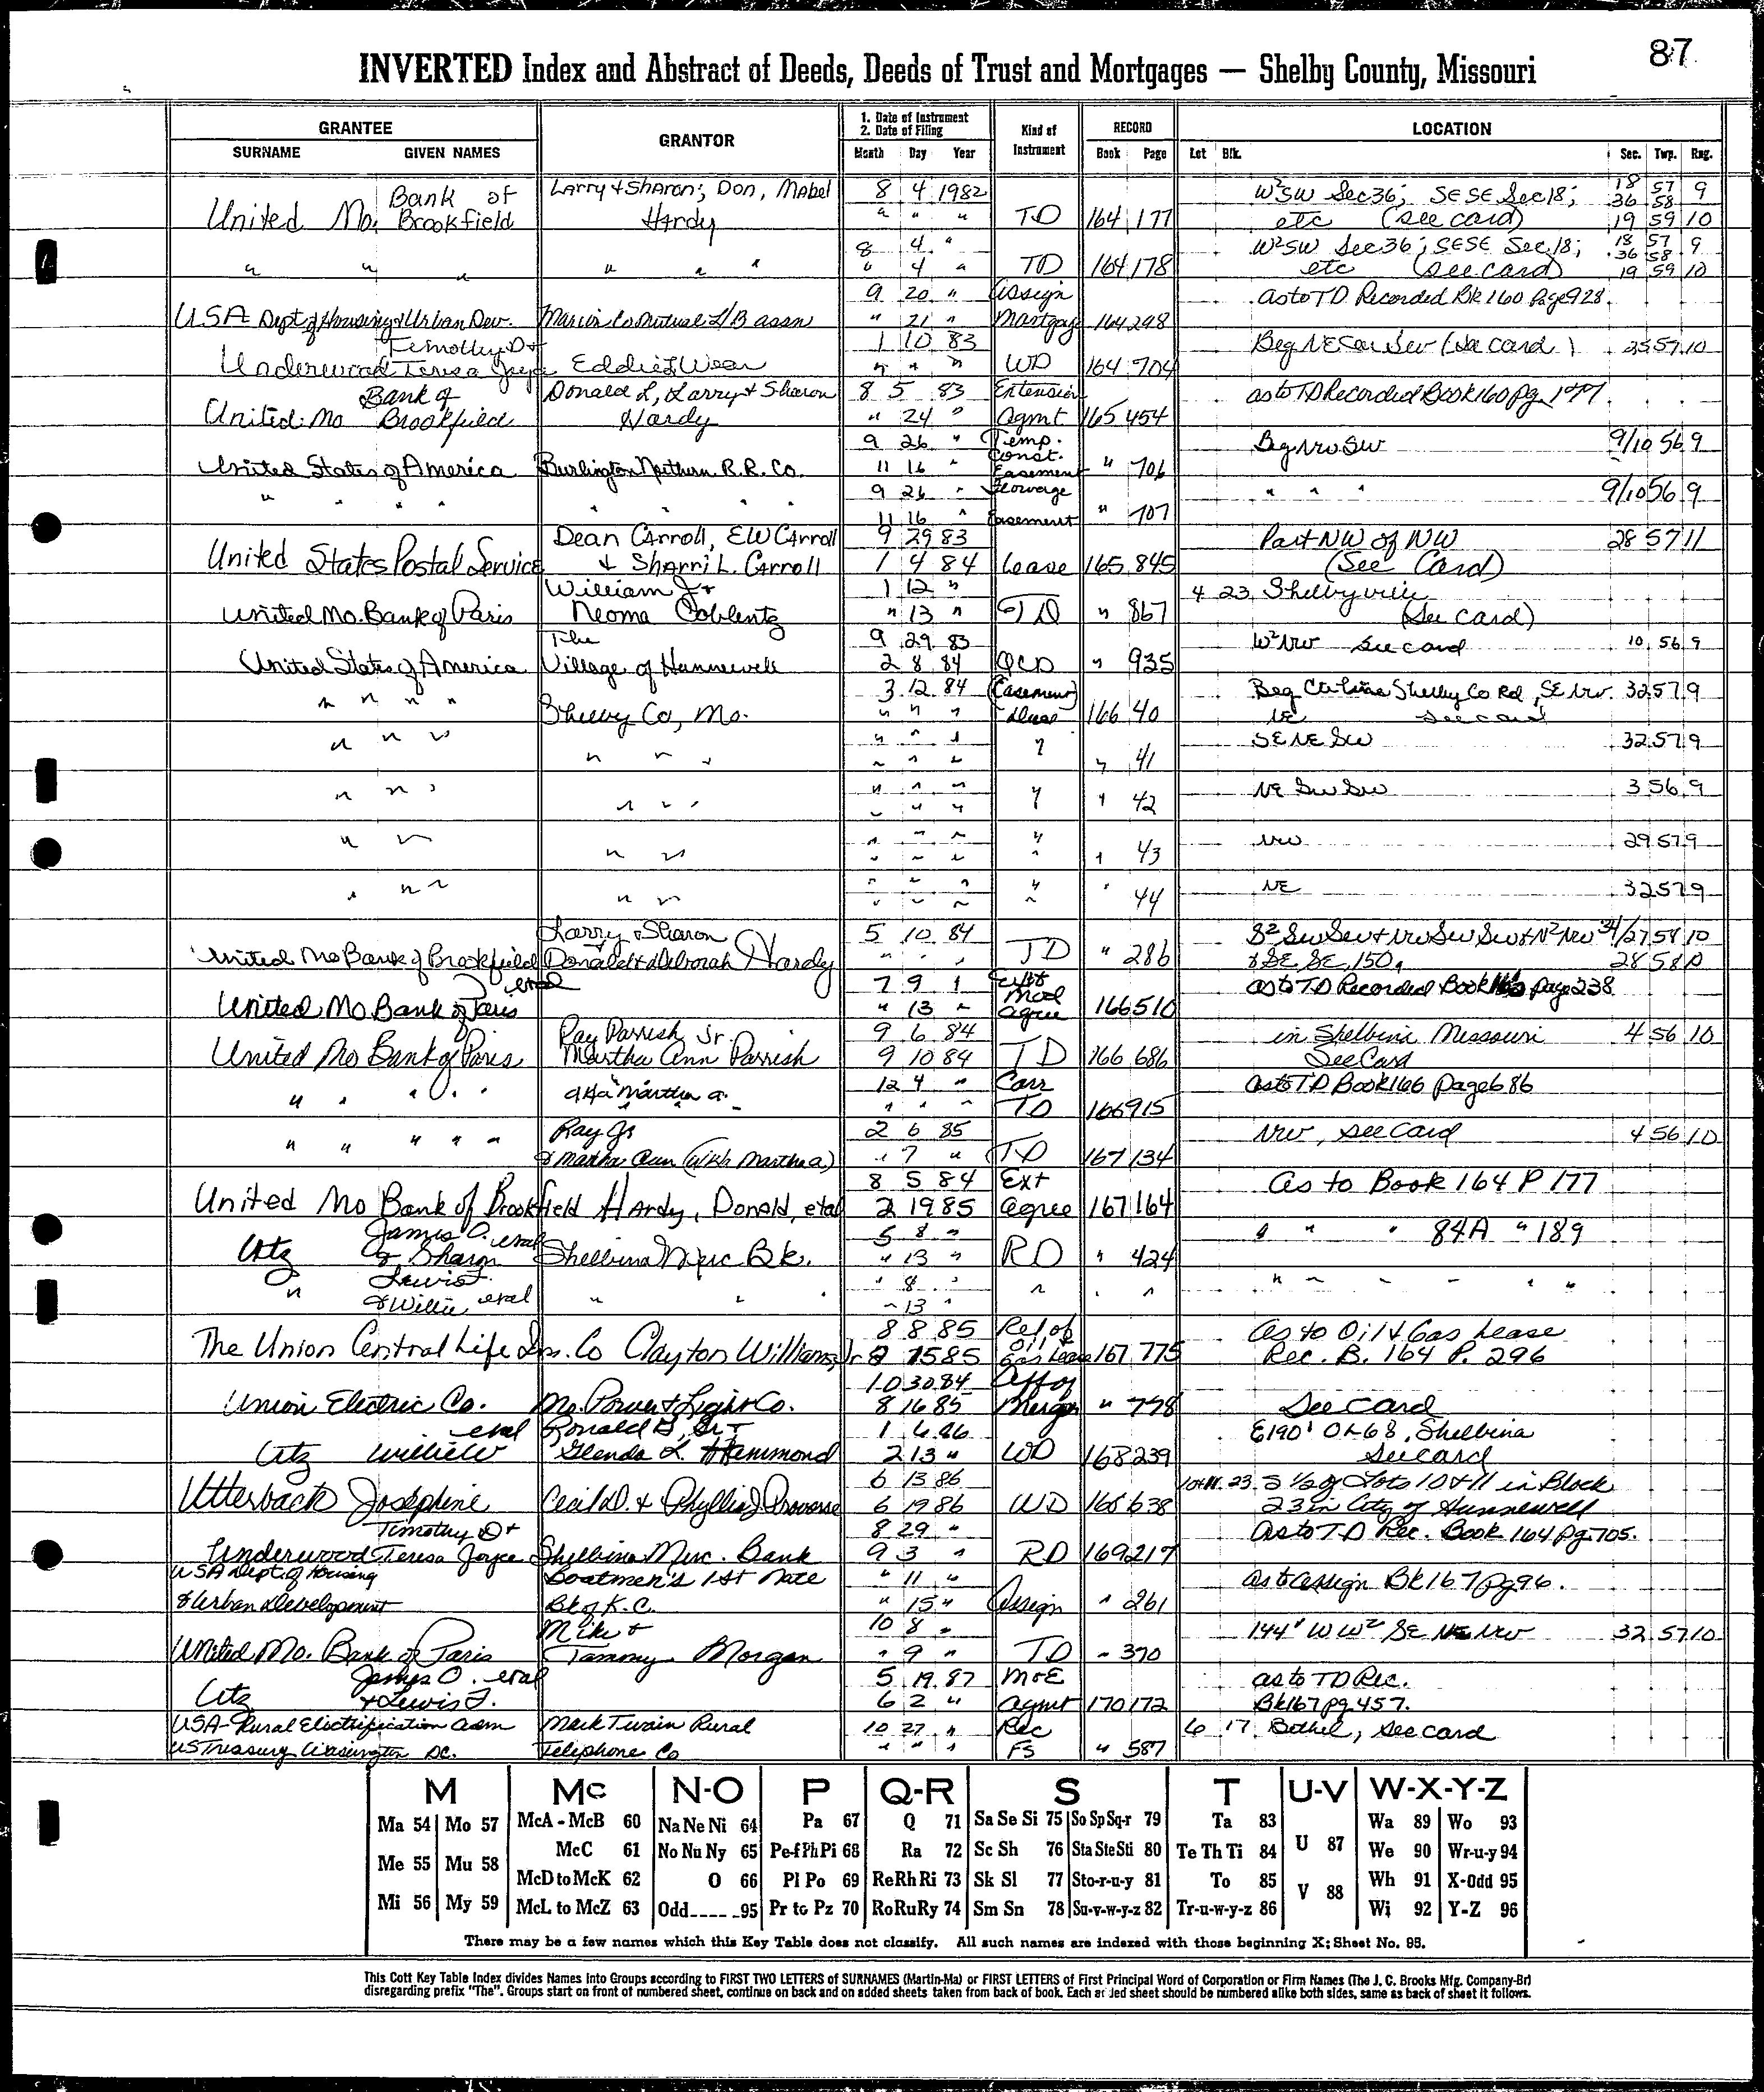 87
INVERTED Index and Abstract of Deeds, Deeds of Trust and Mortgages — Shelby County, Missouri
GRANTEE GRANTOR 1. Date of Instrument Kind of RECORD LOCATION
2. Date of Filing Instrument
SURNAME GIVEN NAMES Month Day Year Book Page Lot Blk. Sec. Twp. Rng.
Bank of Larry & Sharon; Don, Mabel 8 4 1982 W²SW Sec 36; SESE Sec 18; 18 57 9
United Mo. Brookfield Hardy " " " TD 164 177 etc (see card) 36 58 19 59 10
8 4 " W²SW Sec 36; SESE Sec. 18; 18 57 9
" " " " " " " 4 " TD 164 178 etc (see card) 36 58 19 59 10
9 20 " Assign as to TD Recorded Bk 160 Page 928
USA Dept of Housing & Urban Dev. Marion Co Mutual L/B assn " 21 " Mortgage 164 298
Timothy D & 1 10 83 Beg NE Cor SW (See card) 25 57 10
Underwood Teresa Joyce Eddie L Wear " " " WD 164 704
Bank of Donald L, Larry & Sharon 8 5 83 Extension as to TD Recorded Book 160 pg.
United Mo Brookfield Hardy " 24 " Agmt 165 454
9 26 " Temp. Const. Beg NW SW 9/10 56 9
United States of America Burlington Northern R.R. Co. 11 16 " Easement " 706
" " " " " " " 9 26 " Flowage " " " 9/10 56 9
11 16 " Easement " 707
Dean Carroll, EW Carroll 9 29 83 Part NW of NW 28 57 11
United States Postal Service & Sharri L. Carroll 1 4 84 Lease 165 845 (See Card)
William J & 1 12 " 4 23 Shelbyville
United Mo. Bank of Paris Neoma Coblentz " 13 " TD " 867 (See card)
The 9 29 83 W²NW See card 10 56 9
United States of America Village of Hunnewell 2 8 84 QCD " 935
" " " " 3 12 84 Easement Beg Ctr line Shelby Co Rd, SE NW 32 57 9
Shelby Co, Mo. " " " 166 40 NE See card
" " " " " " " SE NE SW 32 57 9
" " " " " " " 41
" " " " " " " NE SW SW 3 56 9
" " " " " " " 42
" " " " " " NW 29 57 9
" " " " " " " 43
" " " " " " " NE 32 57 9
" " " " " " " 44
Larry & Sharon 5 10 84 S² SW SW & NW SW SW & N² NW 34/27 58 10
United Mo Bank of Brookfield Donald & Deborah Hardy " " " TD " 286 & SE SE, 150a 28 58 10
etal 7 9 " Ext Mod as to TD Recorded Book 165 page 238
United Mo Bank of Paris " 13 " agree 166 510
Ray Parrish Jr. 9 6 84 in Shelbina Missouri 4 56 10
United Mo Bank of Paris Martha Ann Parrish 9 10 84 TD 166 686 See Card
" " " " " aka Martha a. 12 4 " Corr as to TD Book 166 page 686
" " " TD 166 915
Ray Jr 2 6 85 NW, See Card 4 56 10
" " " " " & Martha Ann (aka Martha a) " 7 " TD 167 134
8 5 84 Ext As to Book 164 P 177
United Mo Bank of Brookfield Hardy, Donald, etal 2 19 85 agree 167 164
James O. etal 5 8 " " " " 84A " 189
Utz & Sharon Shelbina Merc Bk. " 13 " RD " 424
Lewis F. " 8 " " " " " " "
" & Willie etal " " " " 13 " " " "
8 8 85 Rel of Oil & As to Oil & Gas Lease
The Union Central Life Ins. Co Clayton Williams, Jr 8 15 85 Gas Lease 167 775 Rec. B. 164 P. 296
10 30 84 Aff of
Union Electric Co. Mo. Power & Light Co. 8 16 85 Merger " 778 See card
etal Ronald G, Sr & 1 6 86 E190' OL 68, Shelbina
Utz Willie W Glenda L Hammond 2 13 " WD 168 239 See card
6 13 86 10&11 23 S ½ of Lots 10 & 11 in Block
Utterback Josephine Cecil D. & Phyllis J Provorse 6 19 86 WD 168 638 23 in City of Hunnewell
Timothy D & 8 29 " as to TD Rec. Book 164 Pg 705.
Underwood Teresa Joyce Shelbina Merc. Bank 9 3 " RD 169 217
USA Dept. of Housing Boatmen's 1st Natl " 11 " as to assign Bk 167 pg 96.
& Urban Development Bk of K.C. " 15 " Assign " 261
Mike & 10 8 " 144' W W² SE NE NW 32 57 10
United Mo. Bank of Paris Tammy Morgan " 9 " TD " 370
James O. etal 5 19 87 M & E as to TD Rec.
Utz & Lewis F. 6 2 " Agmt 170 172 Bk 167 pg 457.
USA - Rural Electrification Adm Mark Twain Rural 10 27 " Rec 6 17 Bethel, see card
US Treasury Washington DC. Telephone Co " " " FS " 587
M Mc N-O P Q-R S T U-V W-X-Y-Z
Ma 54 Mo 57 McA - McB 60 Na Ne Ni 64 Pa 67 Q 71 Sa Se Si 75 So Sp Sq-r 79 Ta 83 U 87 Wa 89 Wo 93
McC 61 No Nu Ny 65 Pe-f Ph Pi 68 Ra 72 Sc Sh 76 Sta Ste Sti 80 Te Th Ti 84 We 90 Wr-u-y 94
Me 55 Mu 58 McD to McK 62 O 66 Pl Po 69 Re Rh Ri 73 Sk Sl 77 Sto-r-u-y 81 To 85 V 88 Wh 91 X-Odd 95
Mi 56 My 59 McL to McZ 63 Odd---- -95 Pr to Pz 70 Ro Ru Ry 74 Sm Sn 78 Su-v-w-y-z 82 Tr-u-w-y-z 86 Wi 92 Y-Z 96
There may be a few names which this Key Table does not classify. All such names are indexed with those beginning X; Sheet No. 95.
This Cott Key Table Index divides Names into Groups according to FIRST TWO LETTERS of SURNAMES (Martin-Ma) or FIRST LETTERS of First Principal Word of Corporation or Firm Names (The J. C. Brooks Mfg. Company-Br)
disregarding prefix "The". Groups start on front of numbered sheet, continue on back and on added sheets taken from back of book. Each added sheet should be numbered alike both sides, same as back of sheet it follows.